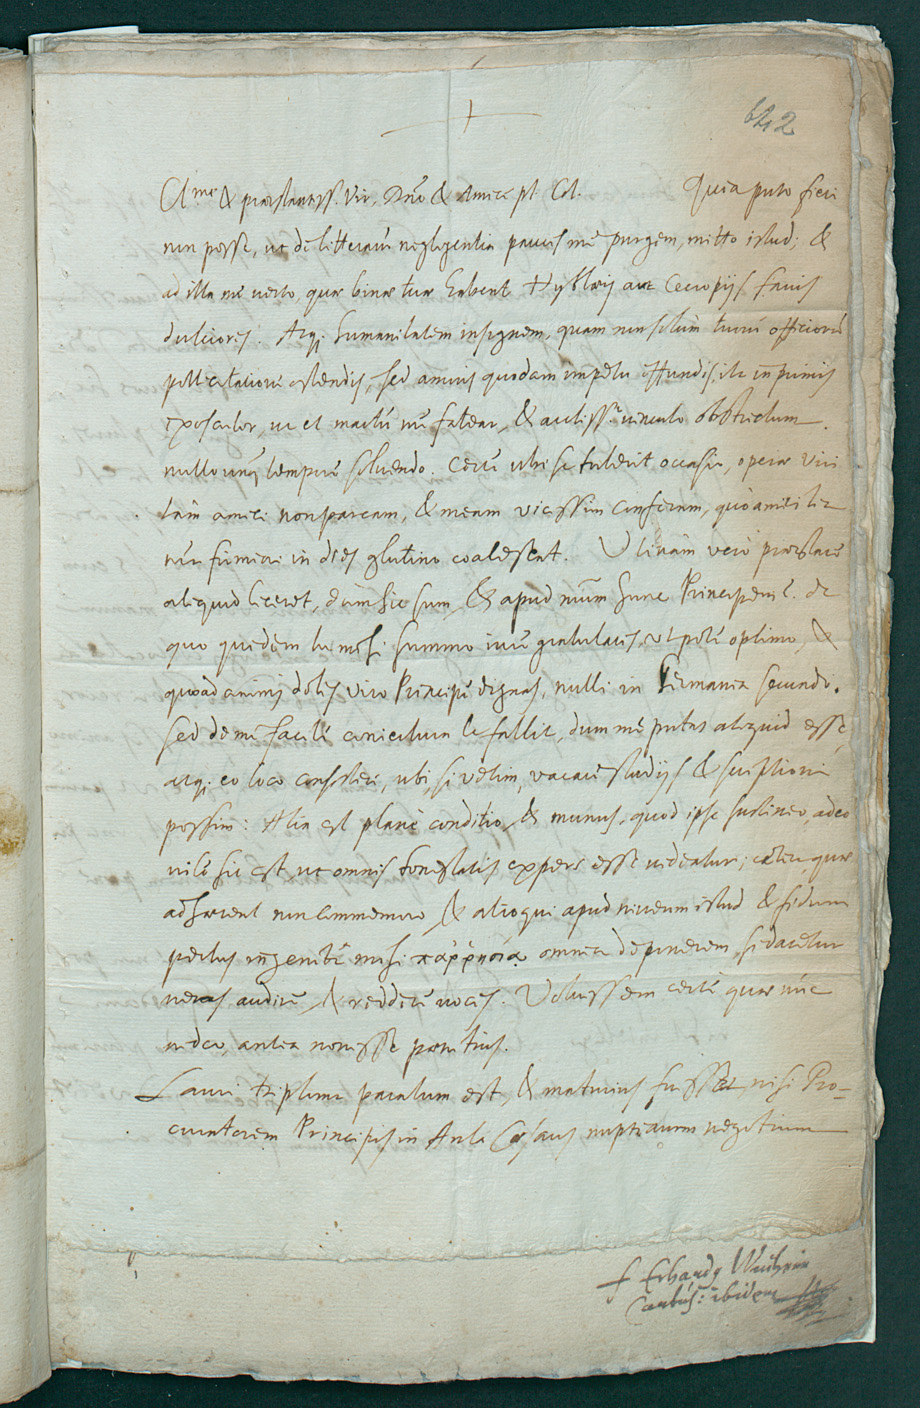 642
Cl.me & praestantiss. Vir, Dne & Amice pl. Col. Quia puto fieri
non posse, ut de litterarum neglegentia paucis me purgem, mitto istud; &
ad illa me verto, quae binae tuae habent Hyblaeis aut Cecropijs favis
dulciores. Atq; humanitatem insignem, quam non solum tuorum officiorum
pollicitatione ostendis, sed amoris quodam impetu effundis, ita inprimis
exosculor, ut et mactū me fatear, & arctiss.o vinculo obstrictum
nullo unq tempore solvendo. Certe ubi se tulerit occasio, operae viri
tam amici non parcam, & meam vicissim conferam, quo amicitia
nrā firmior in dies glutino coalescat. Utinam vero praestare
aliquid liceret, dum hic sum, & apud nrm hunc Principem c. de
quo quidem tu mihi summo iure gratularis, utpote optimo, &
quoad animi dotes viro Principe dignas, nulli in Germania secundo.
Sed de me facile coniectura te fallit, dum me putas aliquid esse,
atq; eo loco consistere, ubi, si velim, vacare studijs & scriptioni
possim: Alia est plane conditio, & munus, quod ipse sustineo, adeo
vile hic est, ut omnis honestatis expers esse videatur; cetera, quae
adhaerent non commemoro, & alioqui apud niveum istud & fidum
pectus ingenita mihi παρρησία omnia deponerem, si daretur
veras audire, & reddere voces. Voluissem certe quae nunc
video, antea novisse penitus.
Lauri triplum paratum est, & maturius fuisset, nisi Pro-
curatorem Principis in Aula Caesaris nuptiarum negotium
f Erhardq
ibidem